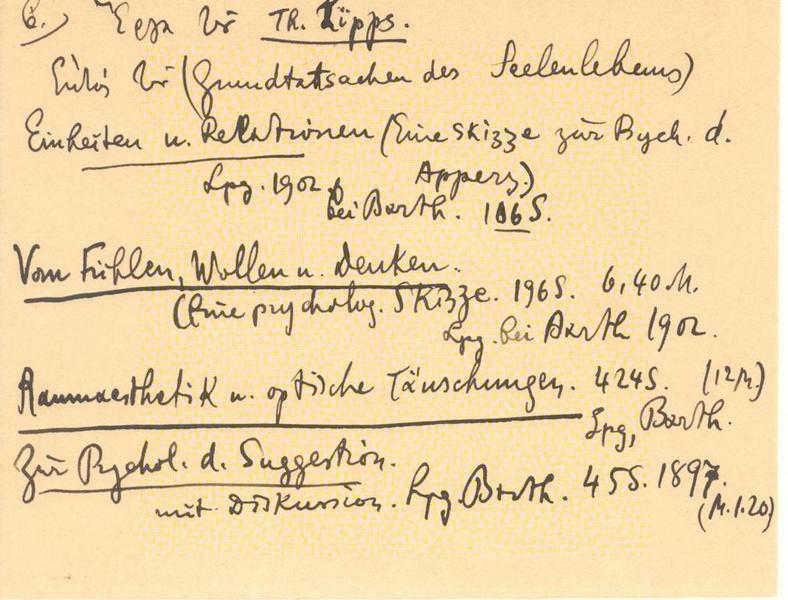 6.) Th. Lipps.
(Grundtatsachen des Seelenlebens)
Einheiten u. Relationen (Eine Skizze zur Psych. d.
Apperz.)
Lpz. 1902 bei Barth. 106 S.
Vom Fühlen, Wollen u. Denken.
(Eine psycholog. Skizze. 196 S. 6,40 M.
Lpz. bei Barth 1902.
Raumaesthetik u. optische Täuschungen. 424 S. (12 M.)
Lpg, Barth.
Zur Psychol. d. Suggestion.
mit Diskussion. Lpg. Barth. 45 S. 1897.
(M. 1.20)